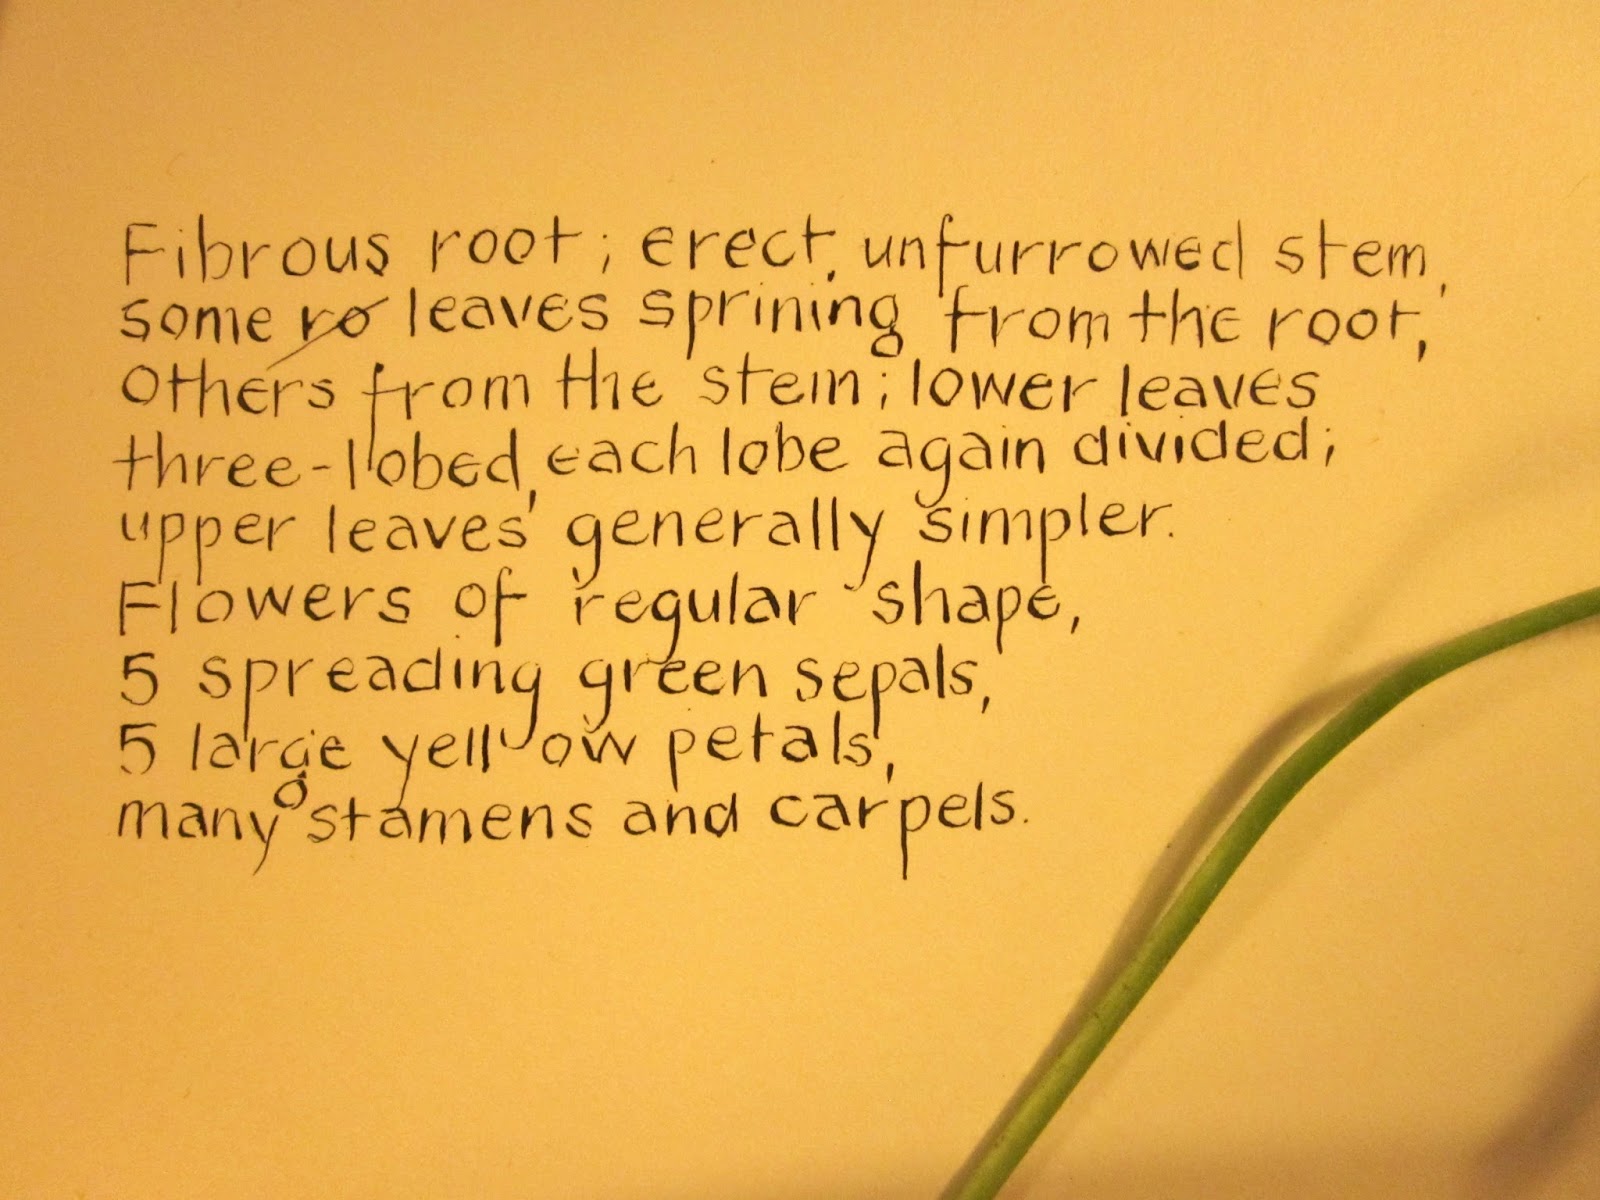 Fibrous root; erect, unfurrowed stem,
some ro leaves sprining from the root,
others from the stem; lower leaves
three-lobed, each lobe again divided;
upper leaves generally simpler.
Flowers of regular shape,
5 spreading green sepals,
5 large yellow petals,
many stamens and carpels.